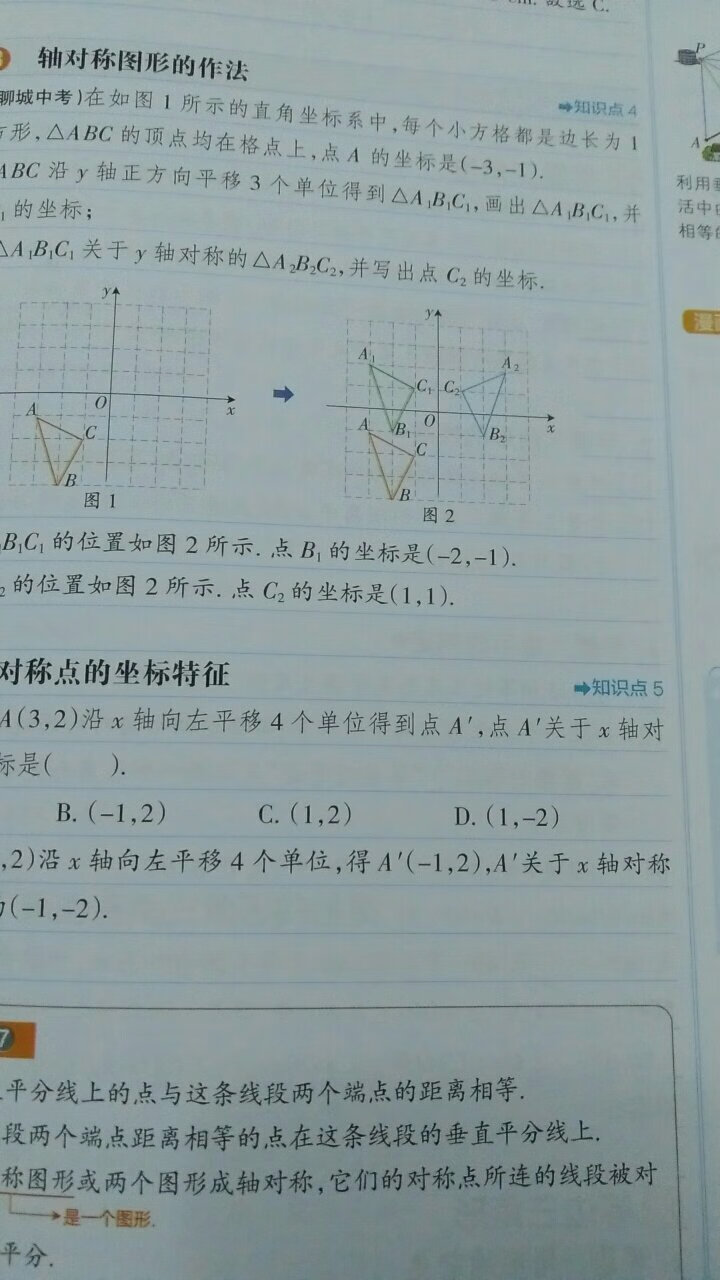 cm. 故选 C.
轴对称图形的作法
➡知识点 4
聊城中考)在如图 1 所示的直角坐标系中,每个小方格都是边长为 1
方形,△ABC 的顶点均在格点上,点 A 的坐标是(-3,-1).
ABC 沿 y 轴正方向平移 3 个单位得到△A₁B₁C₁,画出△A₁B₁C₁,并
₁ 的坐标;
△A₁B₁C₁ 关于 y 轴对称的△A₂B₂C₂,并写出点 C₂ 的坐标.
y
A
O
x
C
B
图 1
➡
y
A₁
A₂
C₁
C₂
A
B₁
O
B₂
x
C
B
图 2
₁B₁C₁ 的位置如图 2 所示. 点 B₁ 的坐标是(-2,-1).
₂ 的位置如图 2 所示. 点 C₂ 的坐标是(1,1).
对称点的坐标特征
➡知识点 5
A(3,2)沿 x 轴向左平移 4 个单位得到点 A′,点 A′关于 x 轴对
标是( ).
B. (-1,2) C. (1,2) D. (1,-2)
,2)沿 x 轴向左平移 4 个单位,得 A′(-1,2),A′关于 x 轴对称
(-1,-2).
7
平分线上的点与这条线段两个端点的距离相等.
段两个端点距离相等的点在这条线段的垂直平分线上.
称图形或两个图形成轴对称,它们的对称点所连的线段被对
是一个图形.
平分.
P
A
利用
活中
相等的
漫